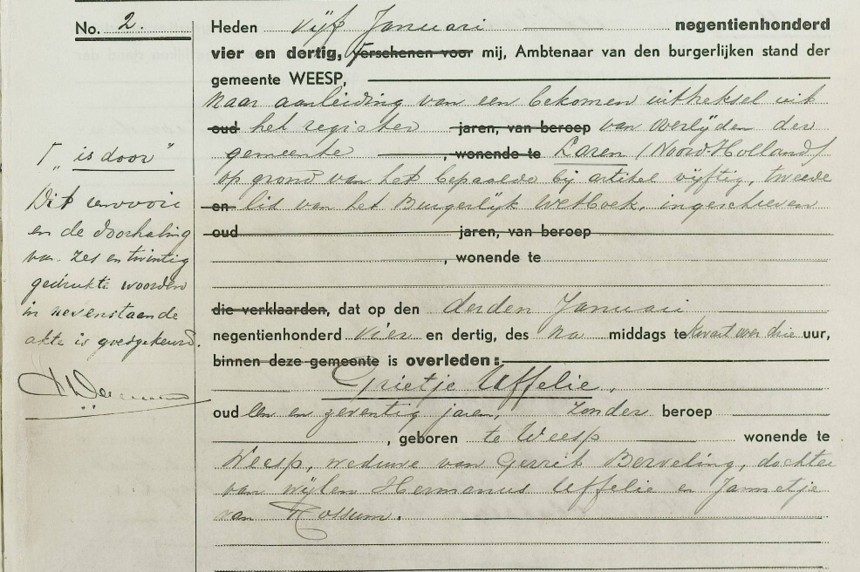 No. 2.
Heden vijf Januari negentienhonderd
vier en dertig, verschenen voor mij, Ambtenaar van den burgerlijken stand der
gemeente WEESP,
naar aanleiding van een bekomen uittreksel uit
oud het register jaren, van beroep van overlijden der
gemeente , wonende te Laren (Noord-Holland)
op grond van het bepaalde bij artikel vijftig, tweede
en lid van het Burgerlijk Wetboek, ingeschreven
oud jaren, van beroep
, wonende te
die verklaarden, dat op den derden Januari
negentienhonderd vier en dertig, des na middags te kwart over drie uur,
binnen deze gemeente is overleden:
Grietje Uffelie,
oud een en zeventig jaren, zonder beroep
, geboren te Weesp wonende te
Weesp, weduwe van Gerrit Berveling, dochter
van wijlen Hermanus Uffelie en Jannetje
van Rossum.
"is door"
Dit renvooi
en de doorhaling
van zes en twintig
gedrukte woorden
in nevenstaande
akte is goedgekeurd.